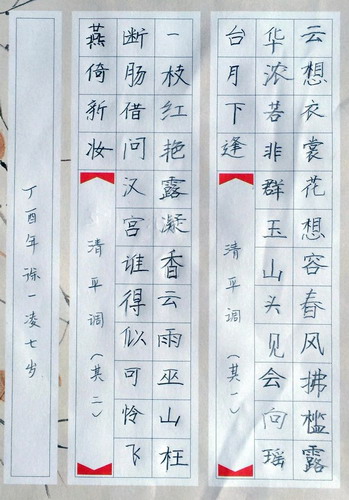 云想衣裳花想容春风拂槛露
华浓若非群玉山头见会向瑶
台月下逢
清平调（其一）
一枝红艳露凝香云雨巫山枉
断肠借问汉宫谁得似可怜飞
燕倚新妆
清平调（其二）
丁酉年 一凌七岁